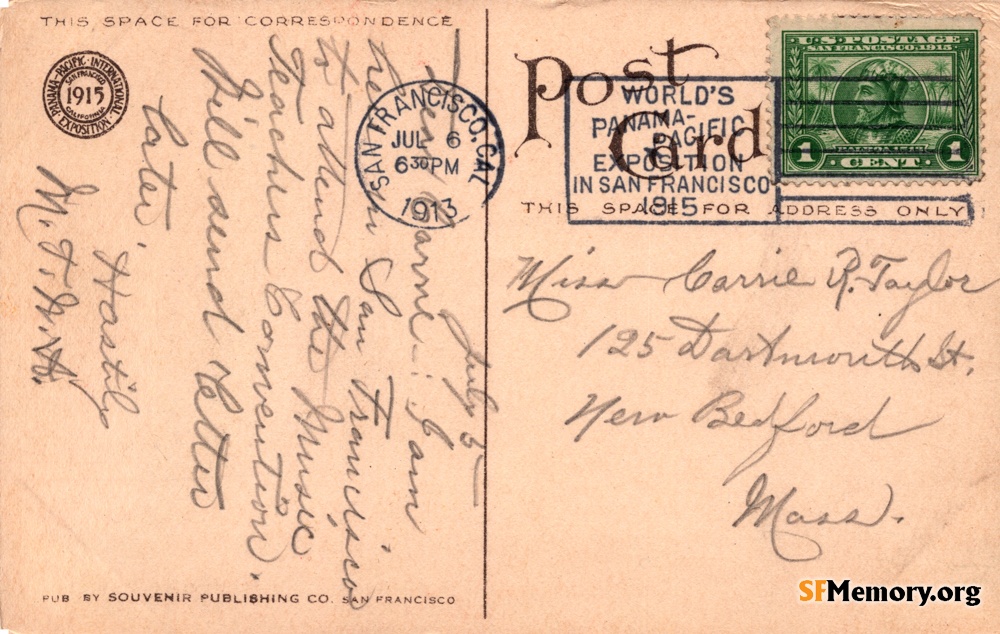 THIS SPACE FOR CORRESPONDENCE
PANAMA-PACIFIC INTERNATIONAL EXPOSITION
SAN FRANCISCO
1915
CALIFORNIA
July 5
Dear Carrie: I am
here in San Francisco
to attend the Music
Teachers Convention.
Will send letter
later.
Hastily
M. T. H.
PUB BY SOUVENIR PUBLISHING CO. SAN FRANCISCO
Post Card
SAN FRANCISCO, CAL
JUL 6
6 30 PM
1913
WORLD'S
PANAMA-
PACIFIC
EXPOSITION
IN SAN FRANCISCO
1915
U.S. POSTAGE
SAN FRANCISCO, 1915
1 CENT 1
THIS SPACE FOR ADDRESS ONLY
Miss Carrie R. Taylor
125 Dartmouth St.
New Bedford
Mass.
SFMemory.org